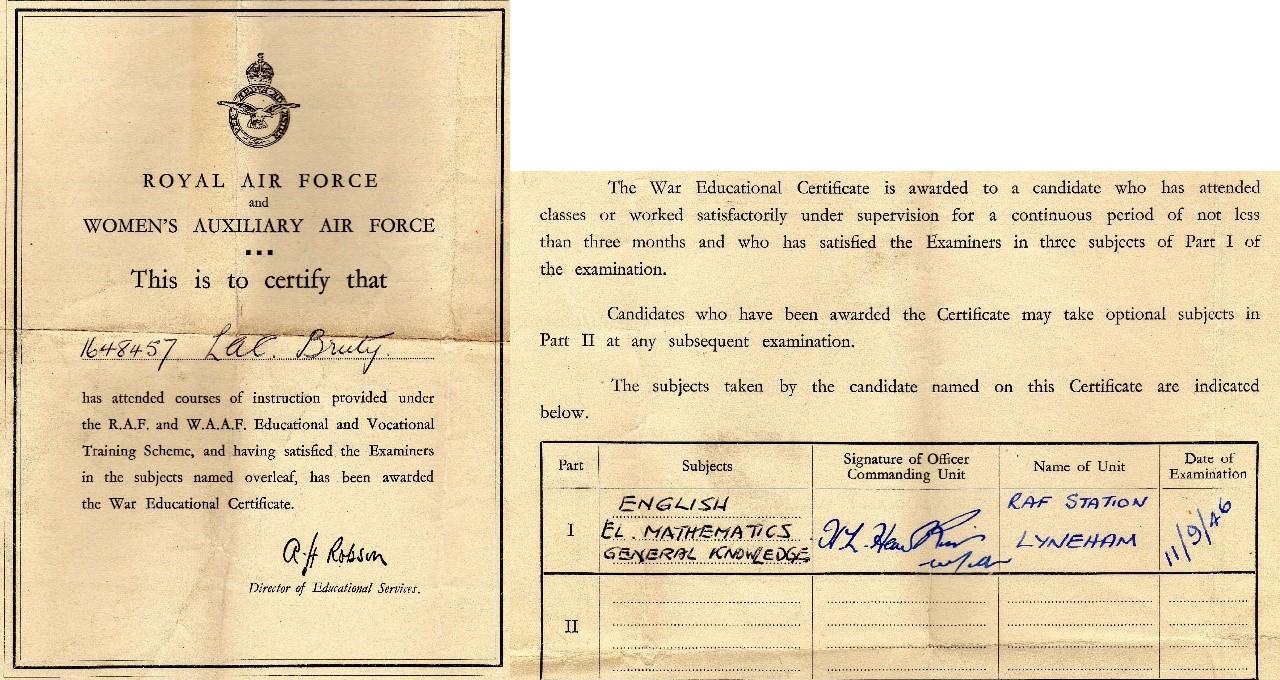 PER ARDUA AD ASTRA
ROYAL AIR FORCE
and
WOMEN'S AUXILIARY AIR FORCE
This is to certify that
1648457 Lac. Bruty.
has attended courses of instruction provided under
the R.A.F. and W.A.A.F. Educational and Vocational
Training Scheme, and having satisfied the Examiners
in the subjects named overleaf, has been awarded
the War Educational Certificate.
A H Robson
Director of Educational Services.
The War Educational Certificate is awarded to a candidate who has attended
classes or worked satisfactorily under supervision for a continuous period of not less
than three months and who has satisfied the Examiners in three subjects of Part I of
the examination.
Candidates who have been awarded the Certificate may take optional subjects in
Part II at any subsequent examination.
The subjects taken by the candidate named on this Certificate are indicated
below.
Part Subjects Signature of Officer Commanding Unit Name of Unit Date of Examination
I
ENGLISH RAF STATION
EL. MATHEMATICS LYNEHAM 11/9/46
GENERAL KNOWLEDGE
II